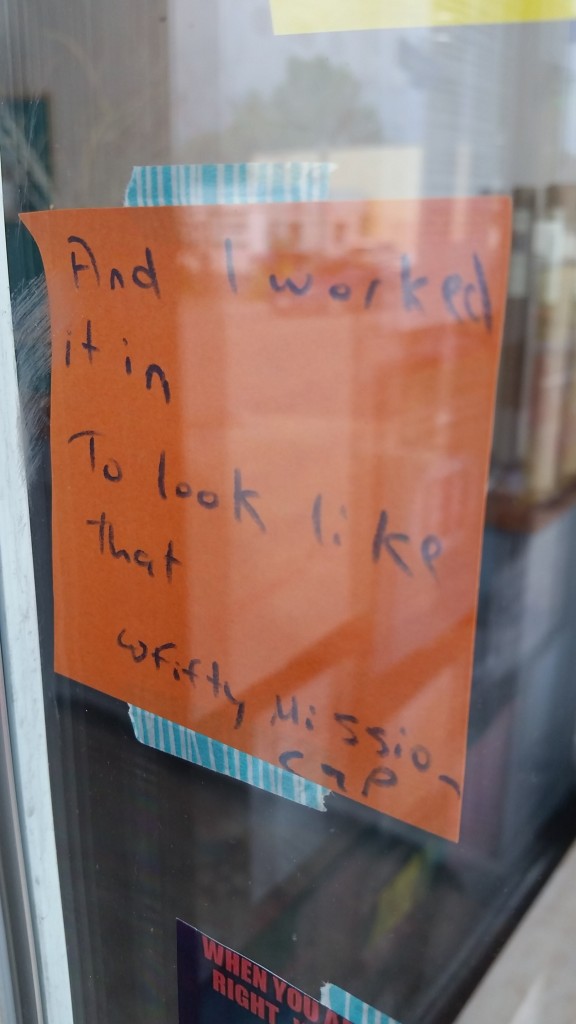 And I worked
it in
To look like
that
Fifty Mission
Cap
WHEN YOU
RIGHT